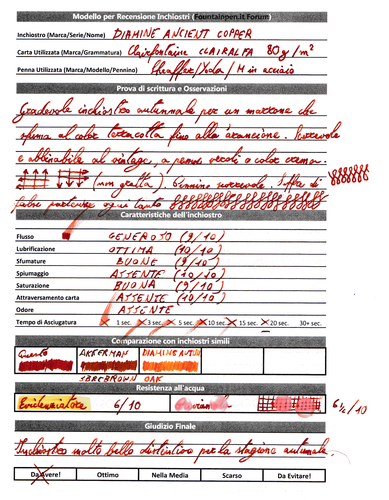 Modello per Recensione Inchiostri (Fountainpen.it Forum)
Inchiostro (Marca/Serie/Nome) DIAMINE ANCIENT COPPER
Carta Utilizzata (Marca/Grammatura) Clairefontaine CLAIRALFA 80 g/m²
Penna Utilizzata (Marca/Modello/Pennino) Sheaffer / / M in acciaio
Prova di scrittura e Osservazioni
Gradevole inchiostro autunnale per un mattone che
sfuma al color terracotta fino alla arancione. Scorrevole
e abbinabile al vintage, a penne vecchi e color crema.
(non graffia). notevole.
tanto
Caratteristiche dell'inchiostro
Flusso GENEROSO (9/10)
Lubrificazione OTTIMA (10/10)
Sfumature BUONE (9/10)
Spiumaggio ASSENTE (10/10)
Saturazione BUONA (9/10)
Attraversamento carta ASSENTE (10/10)
Odore ASSENTE
Tempo di Asciugatura 1 sec. 3 sec. 5 sec. 10 sec. 15 sec. 20 sec. 30+ sec.
Comparazione con inchiostri simili
Questo AKKERMAN DIAMINE AUTUMN
SBREBROWN OAK
Resistenza all'acqua
Evidenziatore 6/10 6½/10
Giudizio Finale
Inchiostro molto bello distintivo per la stagione autunnale.
Da Avere! Ottimo Nella Media Scarso Da Evitare!